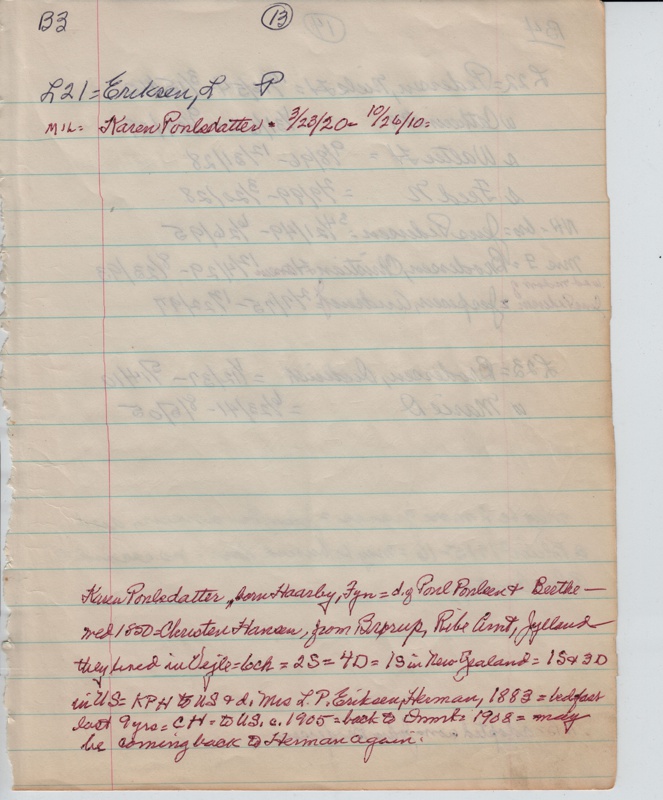 B3
13
L21 = Eriksen, L P
MIL = Karen Poulsdatter = 3/23/20 - 10/26/10 =
Karen Poulsdatter, born Haarby, Fyn = d. of Poul Poulsen & Berthe —
med 1850 = Christen Hansen, from Brprup, Ribe Amt, Jylland
they lived in Vejle = 6ch = 2S = 4D = 1S in New Zealand = 1S & 3D
in US = KPH to US & d. Mrs L. P. Eriksen, Herman, 1883 = bedfast
last 9 yrs = CH = to US, c. 1905 = back to Dnmrk = 1908 = may
be coming back to Herman again.